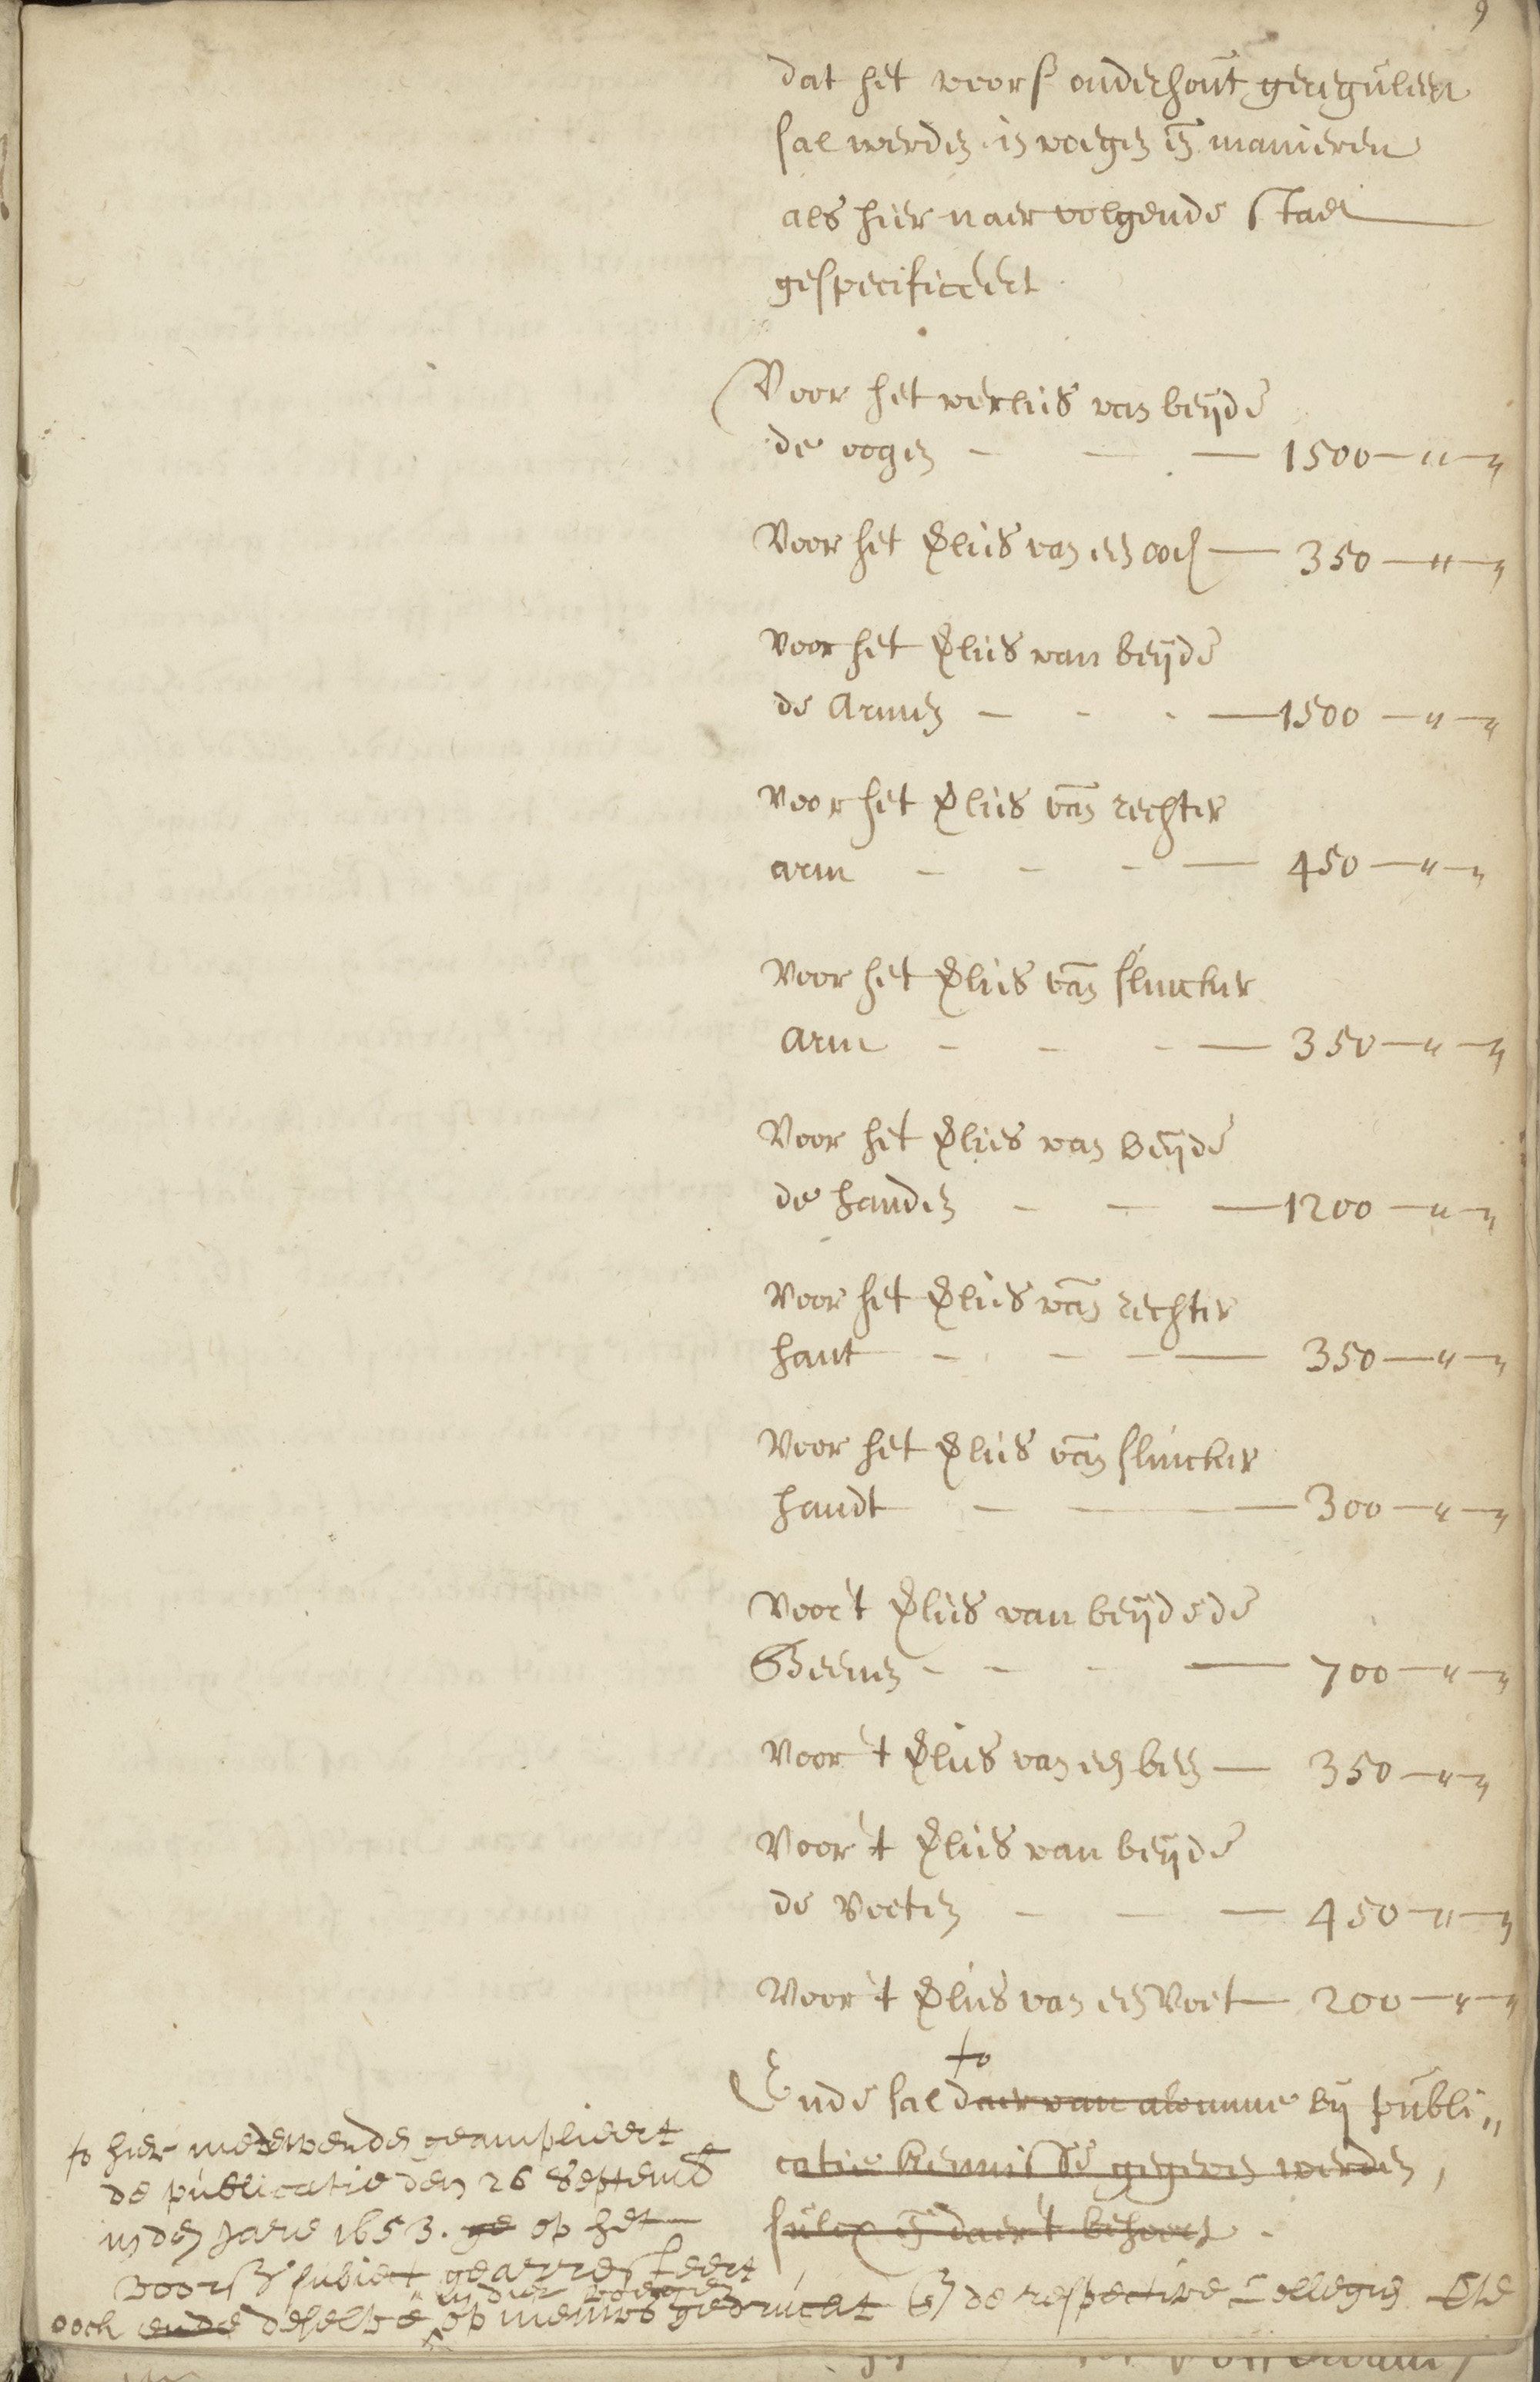 9
dat het voors onderhout gereguleert
sal werden in voegen en manieren
als hier naer volgende staet
gespecificeert
Voor het verlies van beijde
de oogen - - - 1500 - " - "
Voor het vlies van een oog - 350 - " - "
Voor het vlies van beijde
de Armen - - - 1500 - " - "
Voor het vlies van rechter
arm - - - 450 - " - "
Voor het vlies van slincker
Arm - - - 350 - " - "
Voor het vlies van beijde
de handen - - - 1200 - " - "
Voor het vlies van rechter
hant - - - 350 - " - "
Voor het vlies van slincker
handt - - - 300 - " - "
Voor 't vlies van beijde de
Beenen - - - 700 - " - "
Voor 't vlies van een been - 350 - " - "
Voor 't vlies van beijde
de voeten - - - 450 - " - "
Voor 't vlies van een voet - 200 - " - "
Ende sal daer van alomme bij publi"
catie kennisse gegeven werden,
sulcx en daer 't behoort.
hier mede werden geamplieert
de publicatie den 26 Septemb
in den Jare 1653. ge op het
voors subiect gearresteert
in dier voegen
ooch ende deselve op nieuws gedruckt de respective Collegien